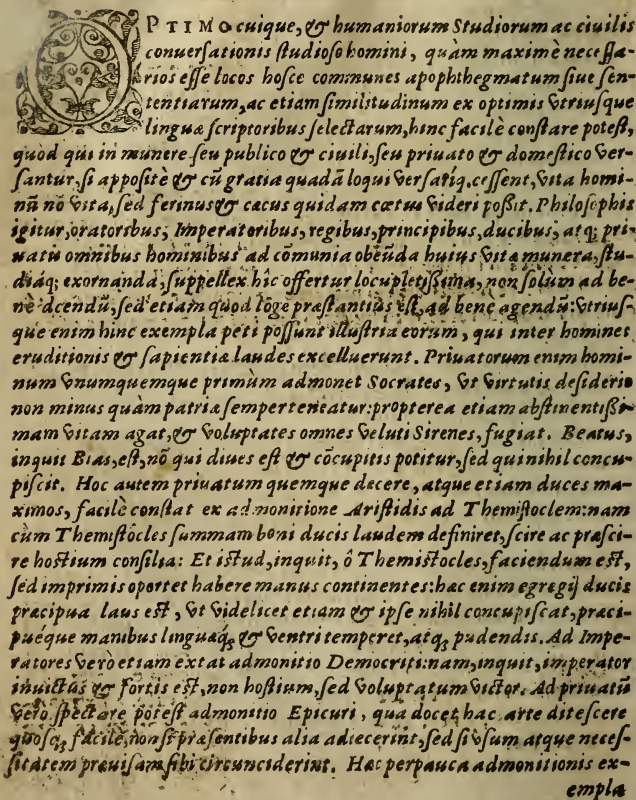 OPTIMO cuique, & humaniorum Studiorum ac ciuilis
conuersationis studioso homini, quàm maximè necessa-
rios esse locos hosce communes apophthegmatum siue sen-
tentiarum, ac etiam similitudinum ex optimis vtriusque
linguæ scriptoribus selectarum, hinc facilè constare potest,
quod qui in munere seu publico & ciuili, seu priuato & domestico ver-
santur, si appositè & cū gratia quadā loqui versariq, cessent, vita homi-
nū nō vita, sed ferinus & cæcus quidam cœtus videri poßit. Philosophis
igitur, oratoribus, Imperatoribus, regibus, principibus, ducibus, atq; pri-
uatis omnibus hominibus ad cōmunia obeūda huius vitæ munera, stu-
diáq; exornanda, suppellex hîc offertur locupletißima, non solùm ad be-
nè dcendū, sed etiam quod lōgè præstantius est, ad benè agendū: vtrius-
que enim hinc exempla peti possunt illustria eorum, qui inter homines
eruditionis & sapientiæ laudes excelluerunt. Priuatorum enim homi-
num vnumquemque primùm admonet Socrates, vt virtutis desiderio
non minus quàm patriæ semper teneatur: propterea etiam abstinentißi-
mam vitam agat, & voluptates omnes veluti Sirenes, fugiat. Beatus,
inquit Bias, est, nō qui diues est & cōcupitis potitur, sed qui nihil concu-
piscit. Hoc autem priuatum quemque decere, atque etiam duces ma-
ximos, facilè constat ex admonitione Aristidis ad Themistoclem: nam
cùm Themistocles summam boni ducis laudem definiret, scire ac præsci-
re hostium consilia: Et istud, inquit, ô Themistocles, faciendum est,
sed imprimis oportet habere manus continentes: hæc enim egregij ducis
præcipua laus est, vt videlicet etiam & ipse nihil concupiscat, præci-
puéque manibus linguæq; & ventri temperet, atq; pudendis. Ad Impe-
ratores verò etiam extat admonitio Democriti: nam, inquit, imperator
inuictus & fortis est, non hostium, sed voluptatum victor. Ad priuatū
verò spectare potest admonitio Epicuri, qua docet hac arte ditescere
quosq; facilè, non si præsentibus alia adiecerint, sed si vsum atque neces-
sitatem præuisam sibi circunciderint. Hæc perpauca admonitionis ex-
empla